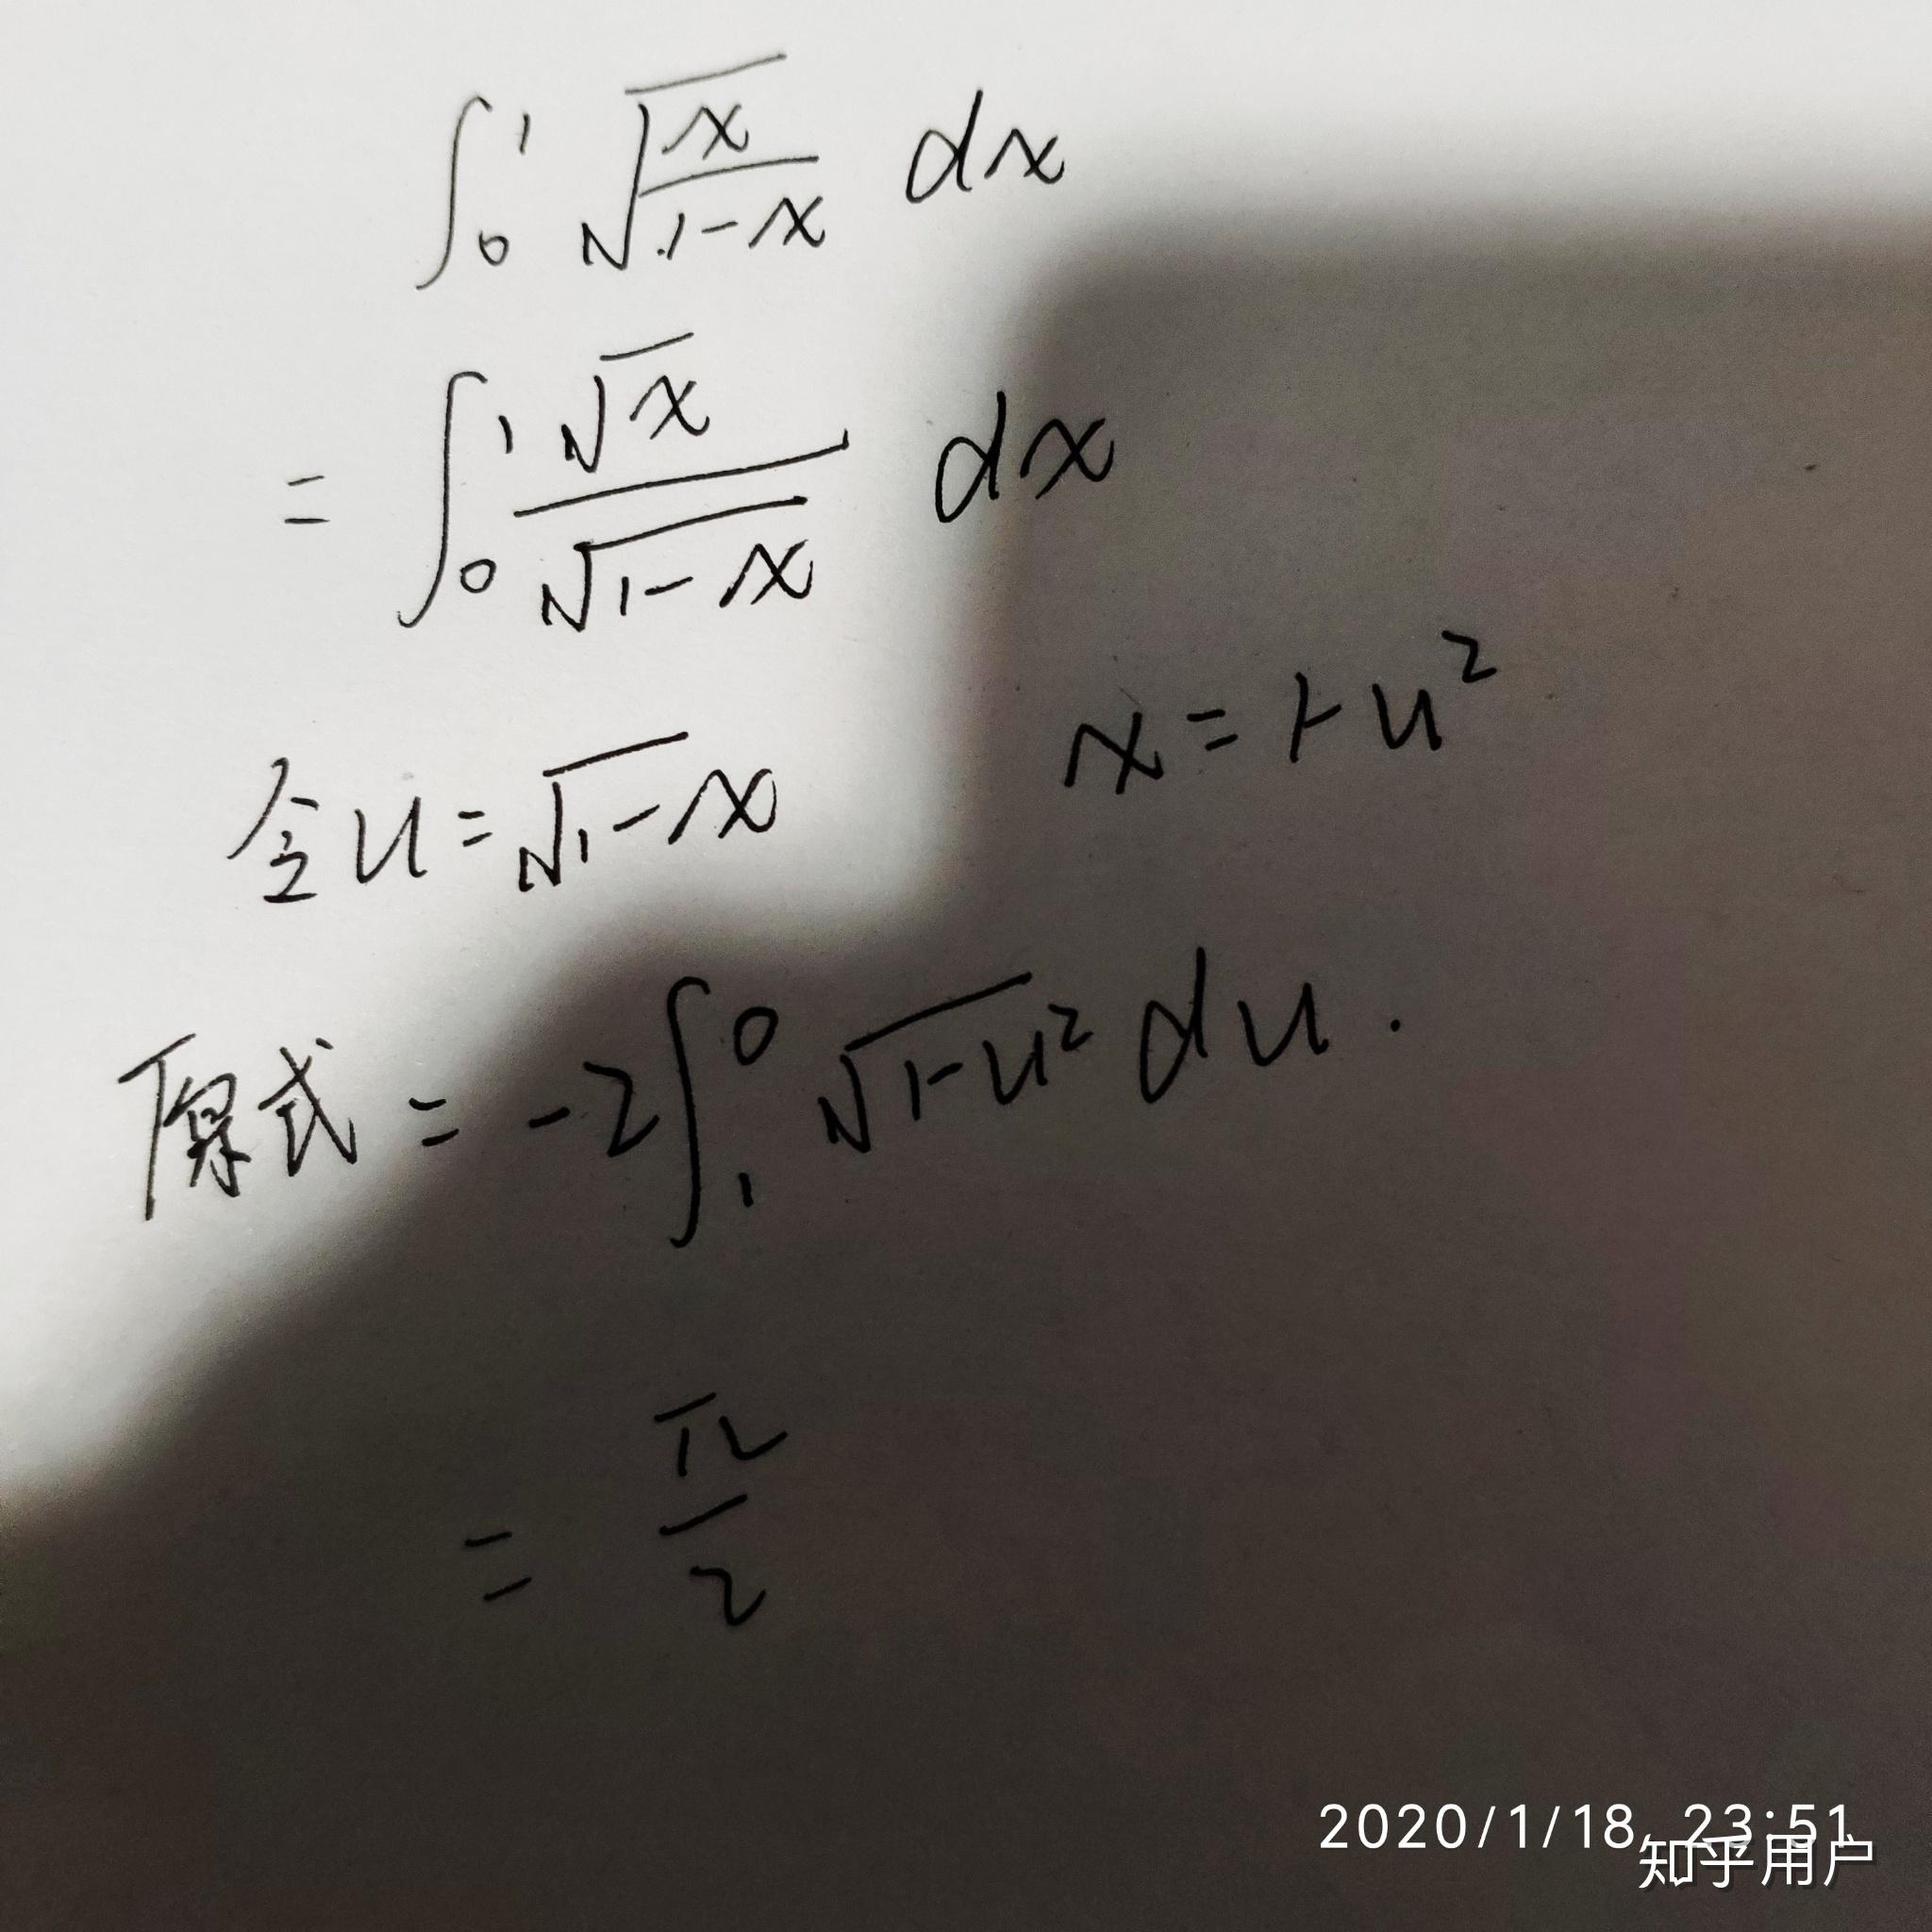 ∫₀¹ √(x/(1-x)) dx
= ∫₀¹ √x/√(1-x) dx
令u=√(1-x) x=1-u²
原式 = -2∫₁⁰ √(1-u²) du.
= π/2
2020/1/18 23:51
知乎用户